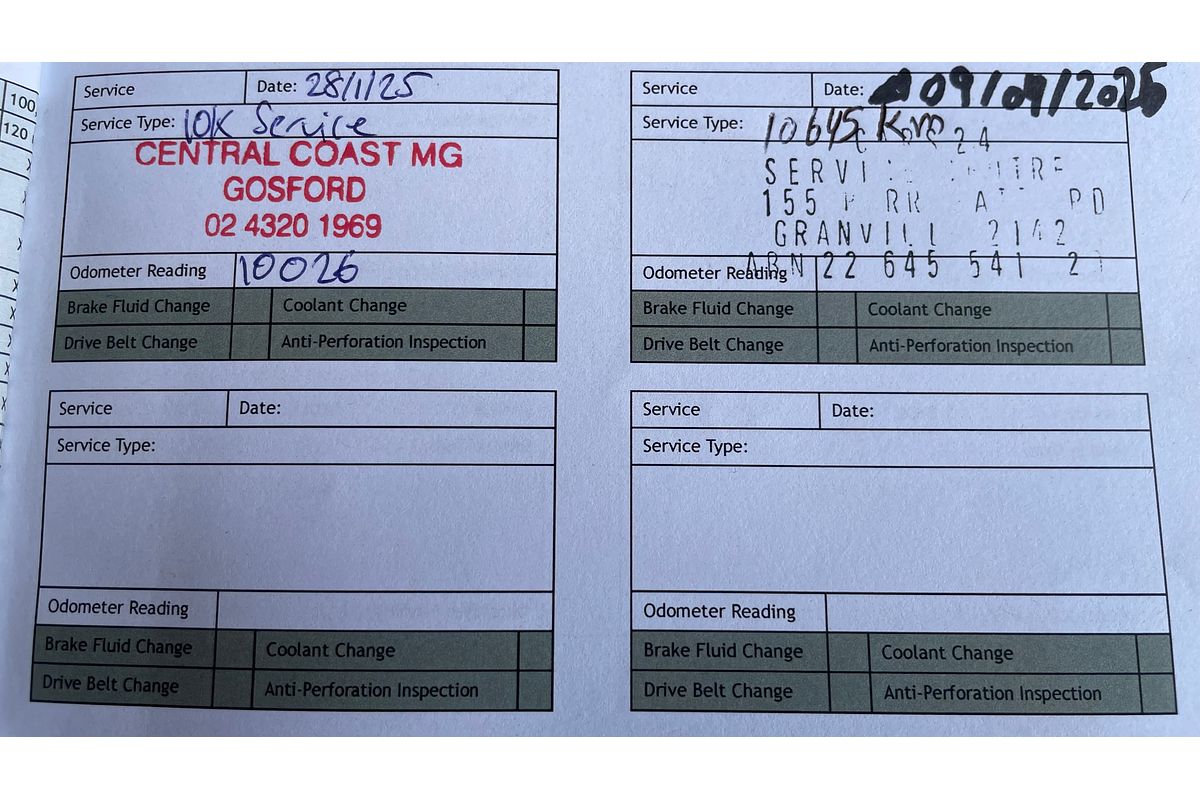 100,
120
Service Date: 28/1/25
Service Type: 10K Service
CENTRAL COAST MG
GOSFORD
02 4320 1969
Odometer Reading 10026
Brake Fluid Change Coolant Change
Drive Belt Change Anti-Perforation Inspection
Service Date: 09/09/2025
Service Type: 10645 Km
24
SERVI
155 RR A RD
GRANVILL 2142
ABN 22 645 541 2
Odometer Reading
Brake Fluid Change Coolant Change
Drive Belt Change Anti-Perforation Inspection
Service Date:
Service Type:
Odometer Reading
Brake Fluid Change Coolant Change
Drive Belt Change Anti-Perforation Inspection
Service Date:
Service Type:
Odometer Reading
Brake Fluid Change Coolant Change
Drive Belt Change Anti-Perforation Inspection